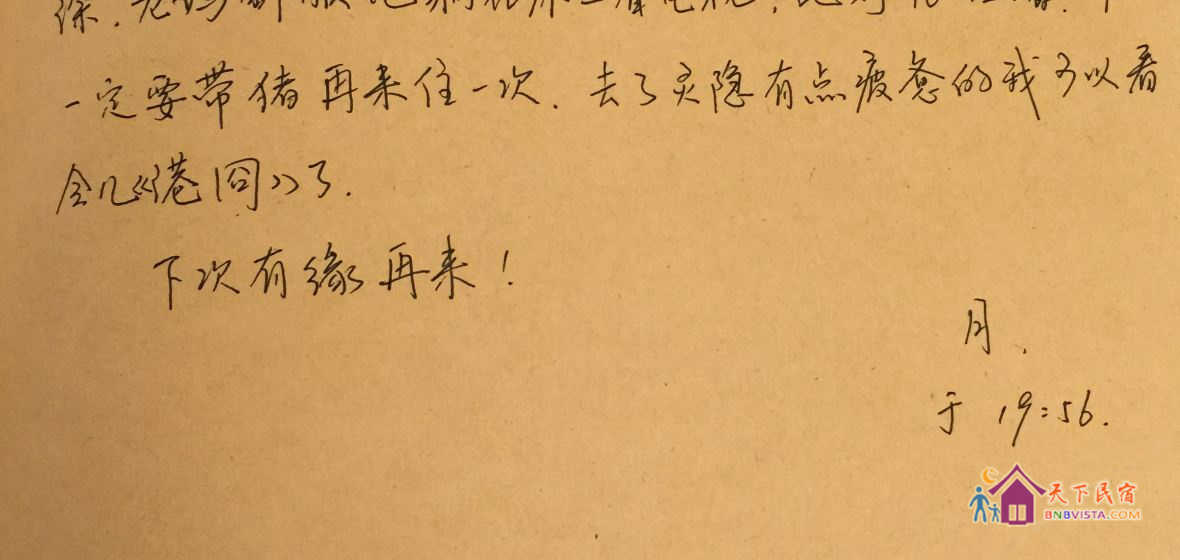 一定要带猪再来住一次.去了灵隐有点疲惫的我可以看
会儿《港囧》了.
下次有缘再来！
月.
于 19:56.
天下民宿
BNBVISTA.COM